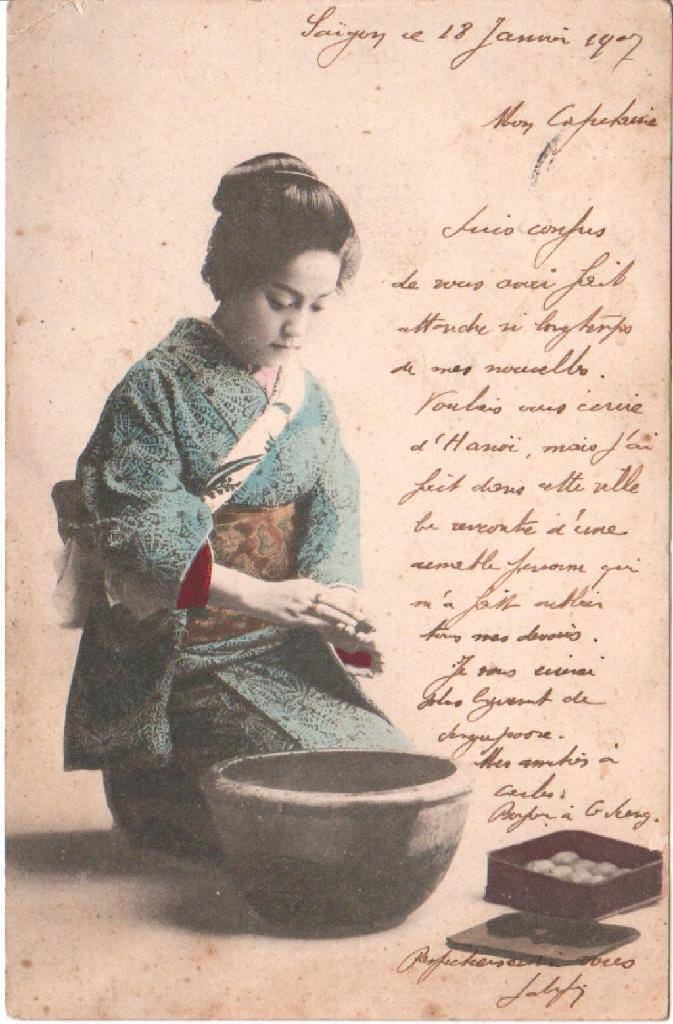 Saïgon ce 18 Janvier 1907
Mon Capitaine
Suis confus
de vous avoir fait
attendre si longtemps
de mes nouvelles.
Voulais vous écrire
d'Hanoï, mais j'ai
fait dans cette ville
la rencontre d'une
aimable personne qui
m'a fait oublier
tous mes devoirs.
Je vous écrirai
plus longuement de
Singapoore.
Mes amitiés à
à
Respectueusement à vous